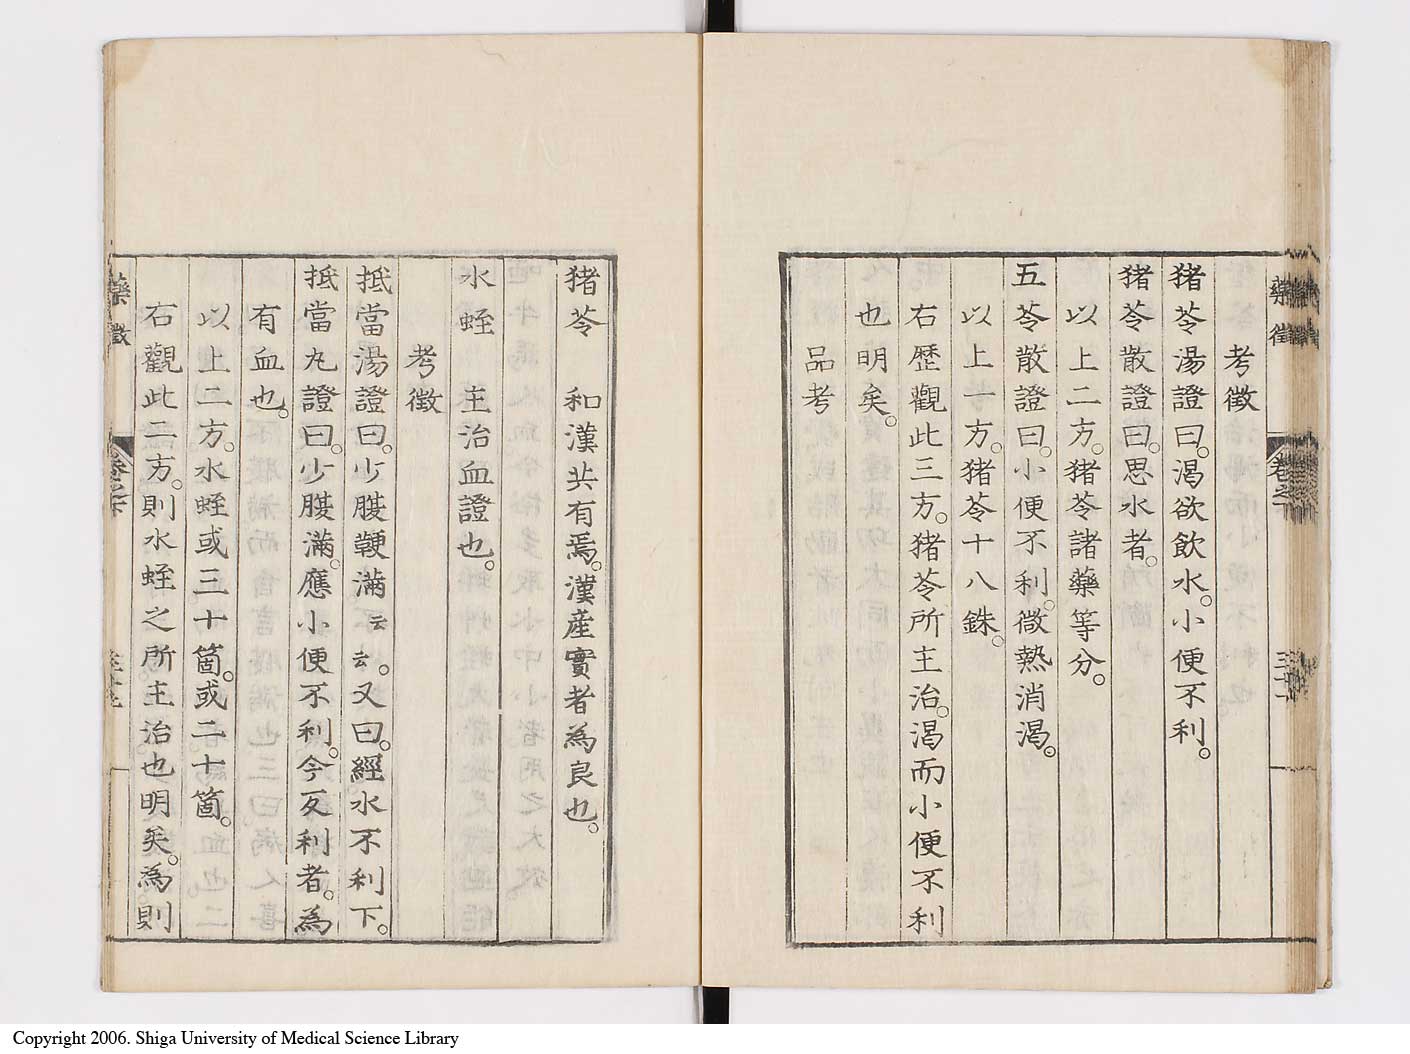 藥徴 卷之下 三十一
考徴
猪苓湯證曰。渴欲飲水。小便不利。
猪苓散證曰。思水者。
以上二方。猪苓諸藥等分。
五苓散證曰。小便不利。微熱消渴。
以上一方。猪苓十八銖。
右歷觀此三方。猪苓所主治。渴而小便不利
也明矣。
品考
猪苓　和漢共有焉。漢産實者為良也。
水蛭　主治血證也。
考徴
抵當湯證曰。少腹鞕滿云云。又曰。經水不利下。
抵當丸證曰。少腹滿。應小便不利。今反利者。為
有血也。
以上二方。水蛭或三十箇。或二十箇。
右觀此二方。則水蛭之所主治也明矣。為則
藥徴 卷之下
Copyright 2006. Shiga University of Medical Science Library